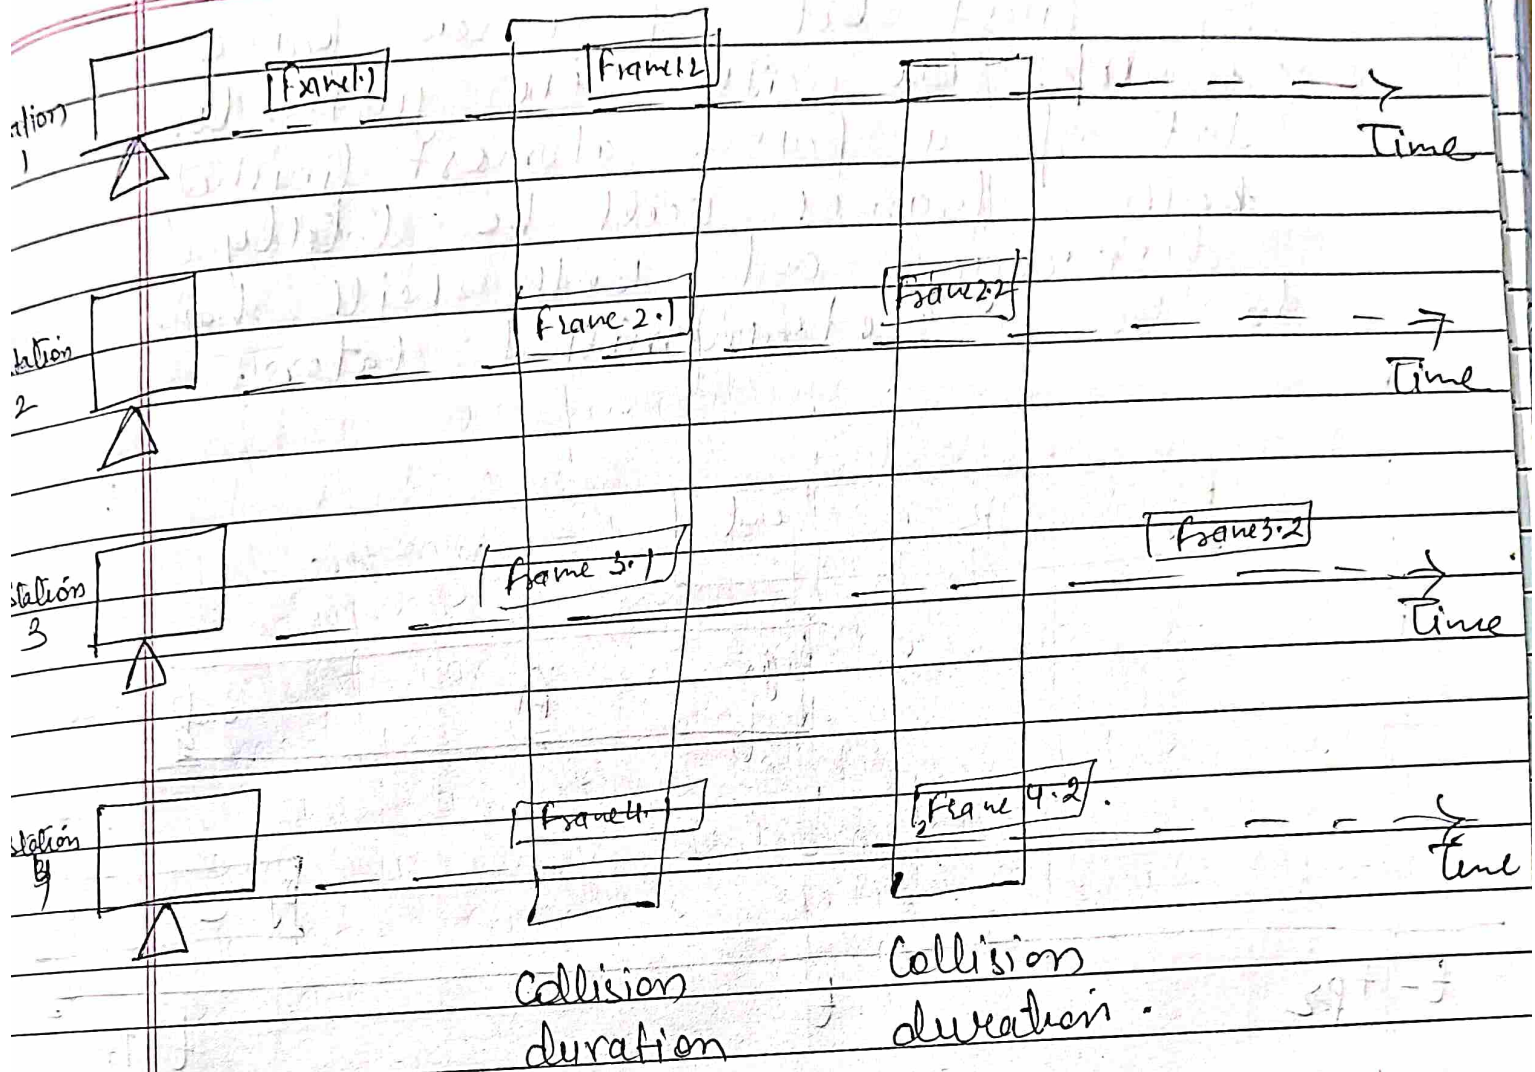 ation
1
Frame1.1
Frame1.2
Time
tation
2
Frame 2.1
Frame2.2
Time
station
3
frame 3.1
frame3.2
Time
station
4
Frame4.
Frame 4.2
Time
Collision
duration
Collision
duration.